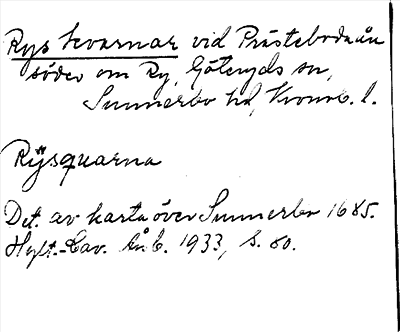 Rys kvarnar vid Prästebodaån
söder om Ry, Göteryds sn,
Sunnerbo hd, Kronob. l.
Rÿsquarna
Det. av karta över Sunnerbo 1685.
Hylt.-Cav. Årb. 1933, s. 60.